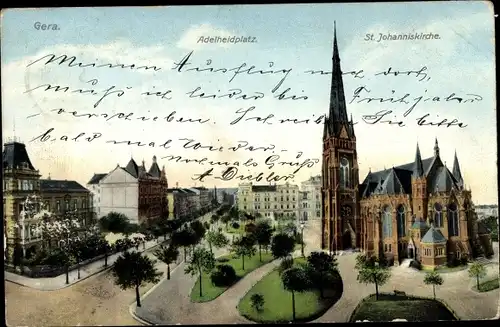 Gera.
Adelheidplatz.
St. Johanniskirche.
Meinen Ausflug nach dort,
muß ich leider bis Frühjahr
verschieben. Schreib Sie bitte
bald mal wieder.
nochmals Gruß
A